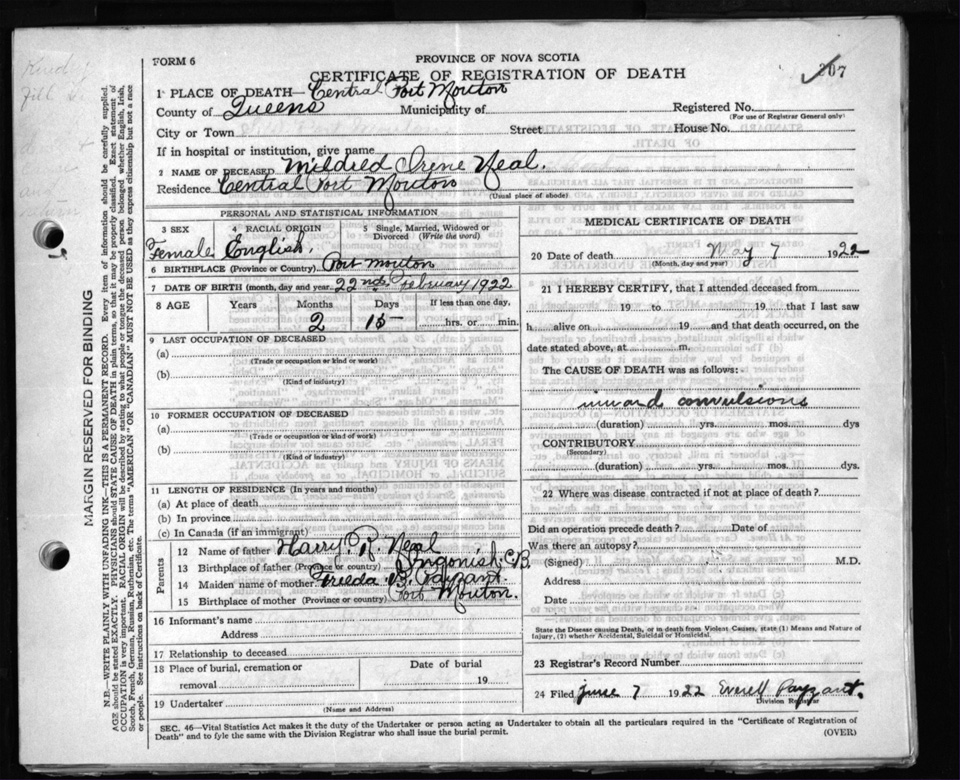 FORM 6
PROVINCE OF NOVA SCOTIA
CERTIFICATE OF REGISTRATION OF DEATH
207
1 PLACE OF DEATH—Central Port Mouton
County of Queens Municipality of
Registered No.
(For use of Registrar General only)
City or Town Street House No.
If in hospital or institution, give name
2 NAME OF DECEASED Mildred Irene Neal.
Residence Central Port Mouton
(Usual place of abode)
PERSONAL AND STATISTICAL INFORMATION
3 SEX
Female
4 RACIAL ORIGIN
English.
5 Single, Married, Widowed or Divorced (Write the word)
6 BIRTHPLACE (Province or Country) Port Mouton
7 DATE OF BIRTH (month, day and year) 22nd February 1922
8 AGE Years Months Days If less than one day,
2 15 hrs. or min.
9 LAST OCCUPATION OF DECEASED
(a)
(Trade or occupation or kind or work)
(b)
(Kind of industry)
10 FORMER OCCUPATION OF DECEASED
(a)
(Trade or occupation or kind of work)
(b)
(Kind of industry)
11 LENGTH OF RESIDENCE (In years and months)
(a) At place of death
(b) In province
(c) In Canada (if an immigrant)
Parents
12 Name of father Harry R. Neal
13 Birthplace of father (Province or country) Ingonish C.B.
14 Maiden name of mother Freeda B. Payzant.
15 Birthplace of mother (Province or country) Port Mouton.
16 Informant's name
Address
17 Relationship to deceased
18 Place of burial, cremation or removal
Date of burial
19
19 Undertaker
(Name and Address)
MEDICAL CERTIFICATE OF DEATH
20 Date of death May 7 1922
(Month, day and year)
21 I HEREBY CERTIFY, that I attended deceased from
19 to 19 that I last saw
h alive on 19 and that death occurred, on
date stated above, at m.
The CAUSE OF DEATH was as follows:
inward convulsions
(duration) yrs. mos. dys
CONTRIBUTORY
(Secondary)
(duration) yrs. mos. dys.
22 Where was disease contracted if not at place of death?
Did an operation precede death? Date of
Was there an autopsy?
(Signed) M.D.
Address
Date
State the Disease causing Death, or in death from Violent Causes, state (1) Means and Nature of Injury, (2) whether Accidental, Suicidal or Homicidal.
23 Registrar's Record Number
24 Filed June 7 1922 Everell Payzant.
Division Registrar
SEC. 46—Vital Statistics Act makes it the duty of the Undertaker or person acting as Undertaker to obtain all the particulars required in the "Certificate of Registration of
Death" and to file the same with the Division Registrar who shall issue the burial permit.
(OVER)
MARGIN RESERVED FOR BINDING
N.B.—WRITE PLAINLY WITH UNFADING INK—THIS IS A PERMANENT RECORD. Every item of information should be carefully supplied.
AGE should be stated EXACTLY. PHYSICIANS should STATE CAUSE OF DEATH in plain terms, so that it may be properly classified. Exact statement of
OCCUPATION is very important. RACIAL ORIGIN will be described by stating to what people or tongue the deceased person belonged whether English, Irish,
Scotch, French, German, Russian, Ruthenian, etc. The terms "AMERICAN" or "CANADIAN" MUST NOT BE USED as they express citizenship but not a race
or people. See instructions on back of Certificate.